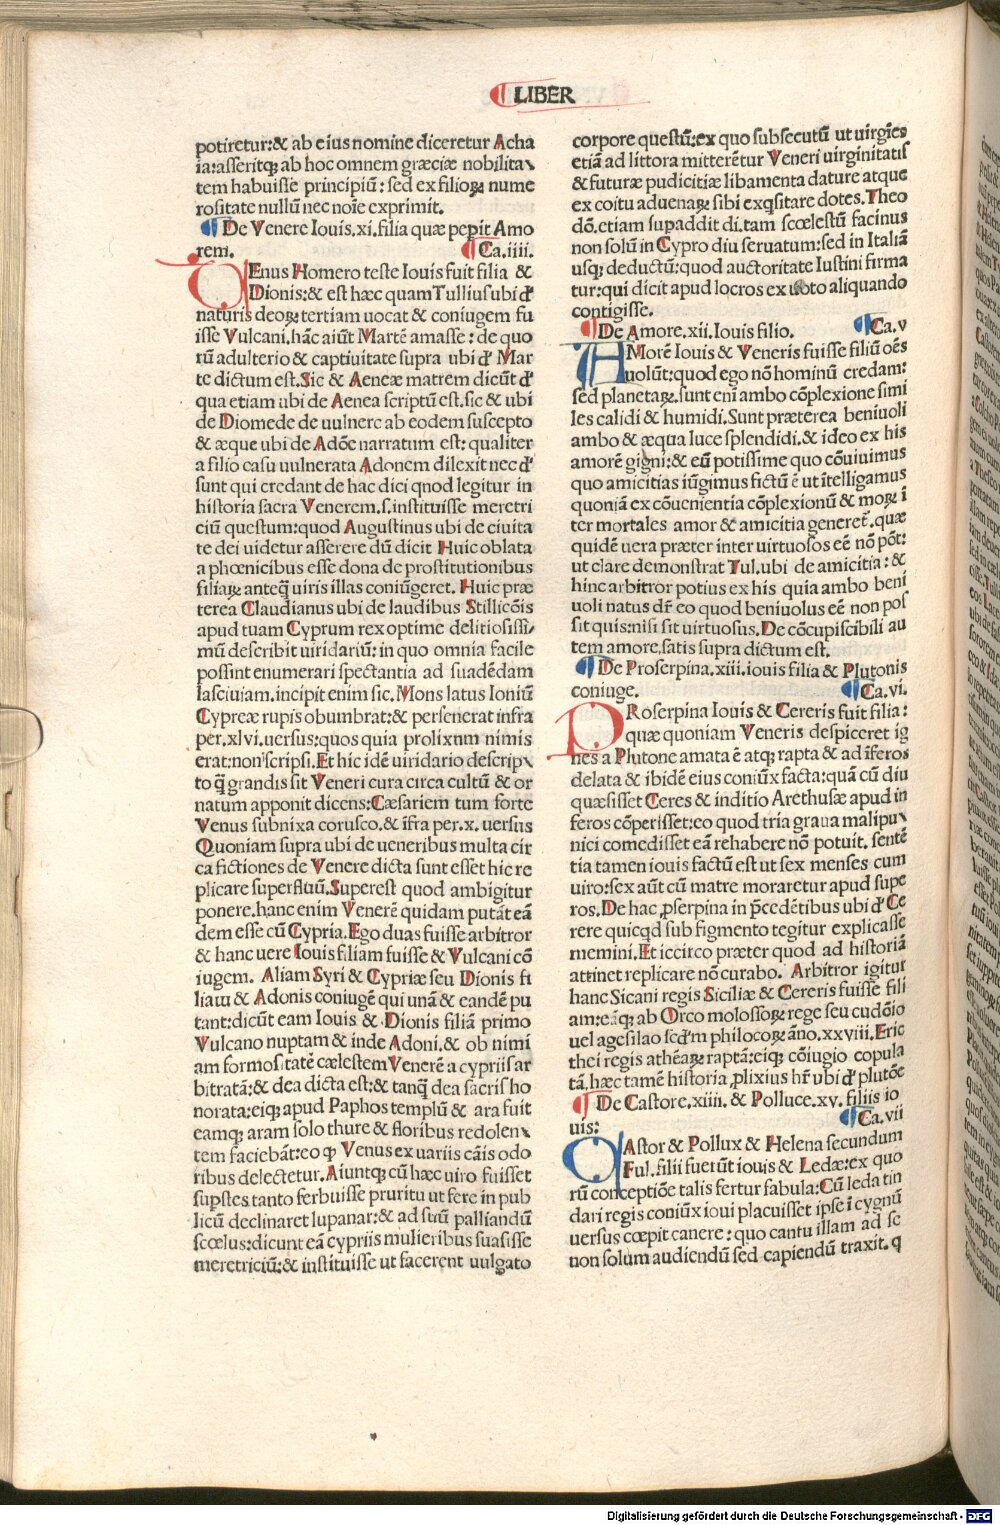 LIBER
potiretur:& ab eius nomine diceretur Acha
ia:asseritq; ab hoc omnem græciæ nobilita
tem habuisse principiũ: sed ex filioꝝ nume
rositate nullũ nec noĩe exprimit.
De Venere Iouis.xi.filia quæ peperit Amo
rem. Ca.iiii.
VEnus Homero teste Iouis fuit filia &
Dionis:& est hæc quam Tullius ubi đ
naturis deoꝝ tertiam uocat & coniugem fu
isse Vulcani.hãc aiũt Martẽ amasse: de quo
rũ adulterio & captiuitate supra ubi đ Mar
te dictum est.Sic & Aeneæ matrem dicũt đ
qua etiam ubi de Aenea scriptũ est.sic & ubi
de Diomede de uulnere ab eodem suscepto
& æque ubi de Adõe narratum est: qualiter
a filio casu uulnerata Adonem dilexit nec đ
sunt qui credant de hac dici qnod legitur in
historia sacra Venerem.s.instituisse meretri
ciũ questum:quod Augustinus ubi de ciuita
te dei uidetur asserere dũ dicit Huic oblata
a phœnicibus esse dona de prostitutionibus
filiaꝝ anteq̃ uiris illas coniũgeret. Huic præ
terea Claudianus ubi de laudibus Stilicõis
apud tuam Cyprum rex optime delitiosissi
mũ describit uiridariũ: in quo omnia facile
possint enumerari spectantia ad suadẽdam
lasciuiam.incipit enim sic. Mons latus Ioniũ
Cypreæ rupis obumbrat:& perseuerat infra
per.xlvi.uersus:quos quia prolixnm nimis
erat:non scripsi.Et hic idẽ uiridario descrip
to q̃ grandis sit Veneri cura circa cultũ & or
natum apponit dicens:Cæsariem tum forte
Venus subnixa corusco.& ĩfra per.x. uersus
Quoniam supra ubi de ueneribus multa cir
ca fictiones de Venere dicta sunt esset hic re
plicare superfluũ.Superest quod ambigitur
ponere.hanc enim Venerẽ quidam putãt eã
dem esse cũ Cypria.Ego duas fuisse arbitror
& hanc uere Iouis filiam fuisse & Vulcani cõ
iugem. Aliam Syri & Cypriæ seu Dionis fi
liam & Adonis coniugẽ qui unã & eandẽ pu
tant:dicũt eam Iouis & Dionis filiã primo
Vulcano nuptam & inde Adoni.& ob nimi
am formositatẽ cælestem Venerẽ a cypriis ar
bitratã:& dea dicta est:& tanq̃ dea sacris ho
norata:eiq; apud Paphos templũ & ara fuit
eamq; aram solo thure & floribus redolen
tem faciebãt:eo ꝙ Venus ex uariis cãis odo
ribus delectetur.Aiuntq; cũ hæc uiro fuisset
supstes tanto ferbuisse pruritu ut fere in pub
licũ declinaret lupanar:& ad suũ palliandũ
scœlus:dicunt eã cypriis mulieribus suasisse
meretriciũ:& instituisse ut facerent uulgato
corpore questũ:ex quo subsecutũ ut uirgĩes
etiã ad littora mitterẽtur Veneri uirginitatis
& futuræ pudicitiæ libamenta dature atque
ex coitu aduenaꝝ sibi exq̃sitare dotes.Theo
dõ.etiam supaddit di.tam scœlestũ facinus
non solũ in Cypro diu seruatum:sed in Italiã
usq; deductũ:quod auctoritate Iustini firma
tur:qui dicit apud locros ex uoto aliquando
contigisse.
De Amore.xii.Iouis filio. Ca.v
AMorẽ Iouis & Veneris fuisse filiũ oẽs
uolũt:quod ego nõ hominũ credam:
sed planetaꝝ.sunt enĩ ambo cõplexione simi
les calidi & humidi.Sunt præterea beniuoli
ambo & æqua luce splendidi.& ideo ex his
amorẽ gigni:& eũ potissime quo cõuiuimus
quo amicitias iũgimus fictũ ẽ ut ĩtelligamus
quoniã ex cõuenientia cõplexionũ & moꝝ ĩ
ter mortales amor & amicitia generet̃.quæ
quidẽ uera præter inter uirtuosos eẽ nõ põt:
ut clare demonstrat Tul.ubi de amicitia: &
hinc arbitror potius ex his quia ambo beni
uoli natus dr̃ eo quod beniuolus eẽ non pos
sit quis:nisi sit uirtuosus.De cõcupiscibili au
tem amore,satis supra dictum est.
De Proserpina.xiii.iouis filia & Plutonis
coniuge. Ca.vi.
PRoserpina Iouis & Cereris fuit filia:
quæ quoniam Veneris despiceret ig
nes a Plutone amata ẽ atq; rapta & ad ĩferos
delata & ibidẽ eius coniũx facta:quã cũ diu
quæsisset Ceres & inditio Arethusæ apud in
feros cõperisset:eo quod tria grana malipu
nici comedisset eã rehabere nõ potuit. sentẽ
tia tamen iouis factũ est ut sex menses cum
uiro:sex aũt cũ matre moraretur apud supe
ros.De hac ꝓserpina in p̃cedẽtibus ubi đ Ce
rere quicqd sub figmento tegitur explicasse
memini.Et iccirco præter quod ad historiã
attinet replicare nõ curabo. Arbitror igitur
hanc Sicani regis Siciliæ & Cereris fuisse fili
am:eãq; ab Orco molossoꝝ rege seu cudõio
uel agesilao scđ'm philocoꝝ ãno.xxviii.Eric
thei regis athẽaꝝ raptã:eiq; cõiugio copula
tã.hæc tamẽ historia ꝓlixius hr̃ ubi đ plutõe
De Castore.xiiii. & Polluce.xv. filiis io
uis: Ca.vii
CAstor & Pollux & Helena secundum
Ful.filii fuerũt iouis & Ledæ:ex quo
rũ conceptiõe talis fertur fabula:Cũ leda tin
dari regis coniũx ioui placuisset ipse ĩ cygnũ
uersus cœpit canere: quo cantu illam ad se
non solum audiendũ sed capiendũ traxit. q
Digitalisierung gefördert durch die Deutsche Forschungsgemeinschaft - DFG